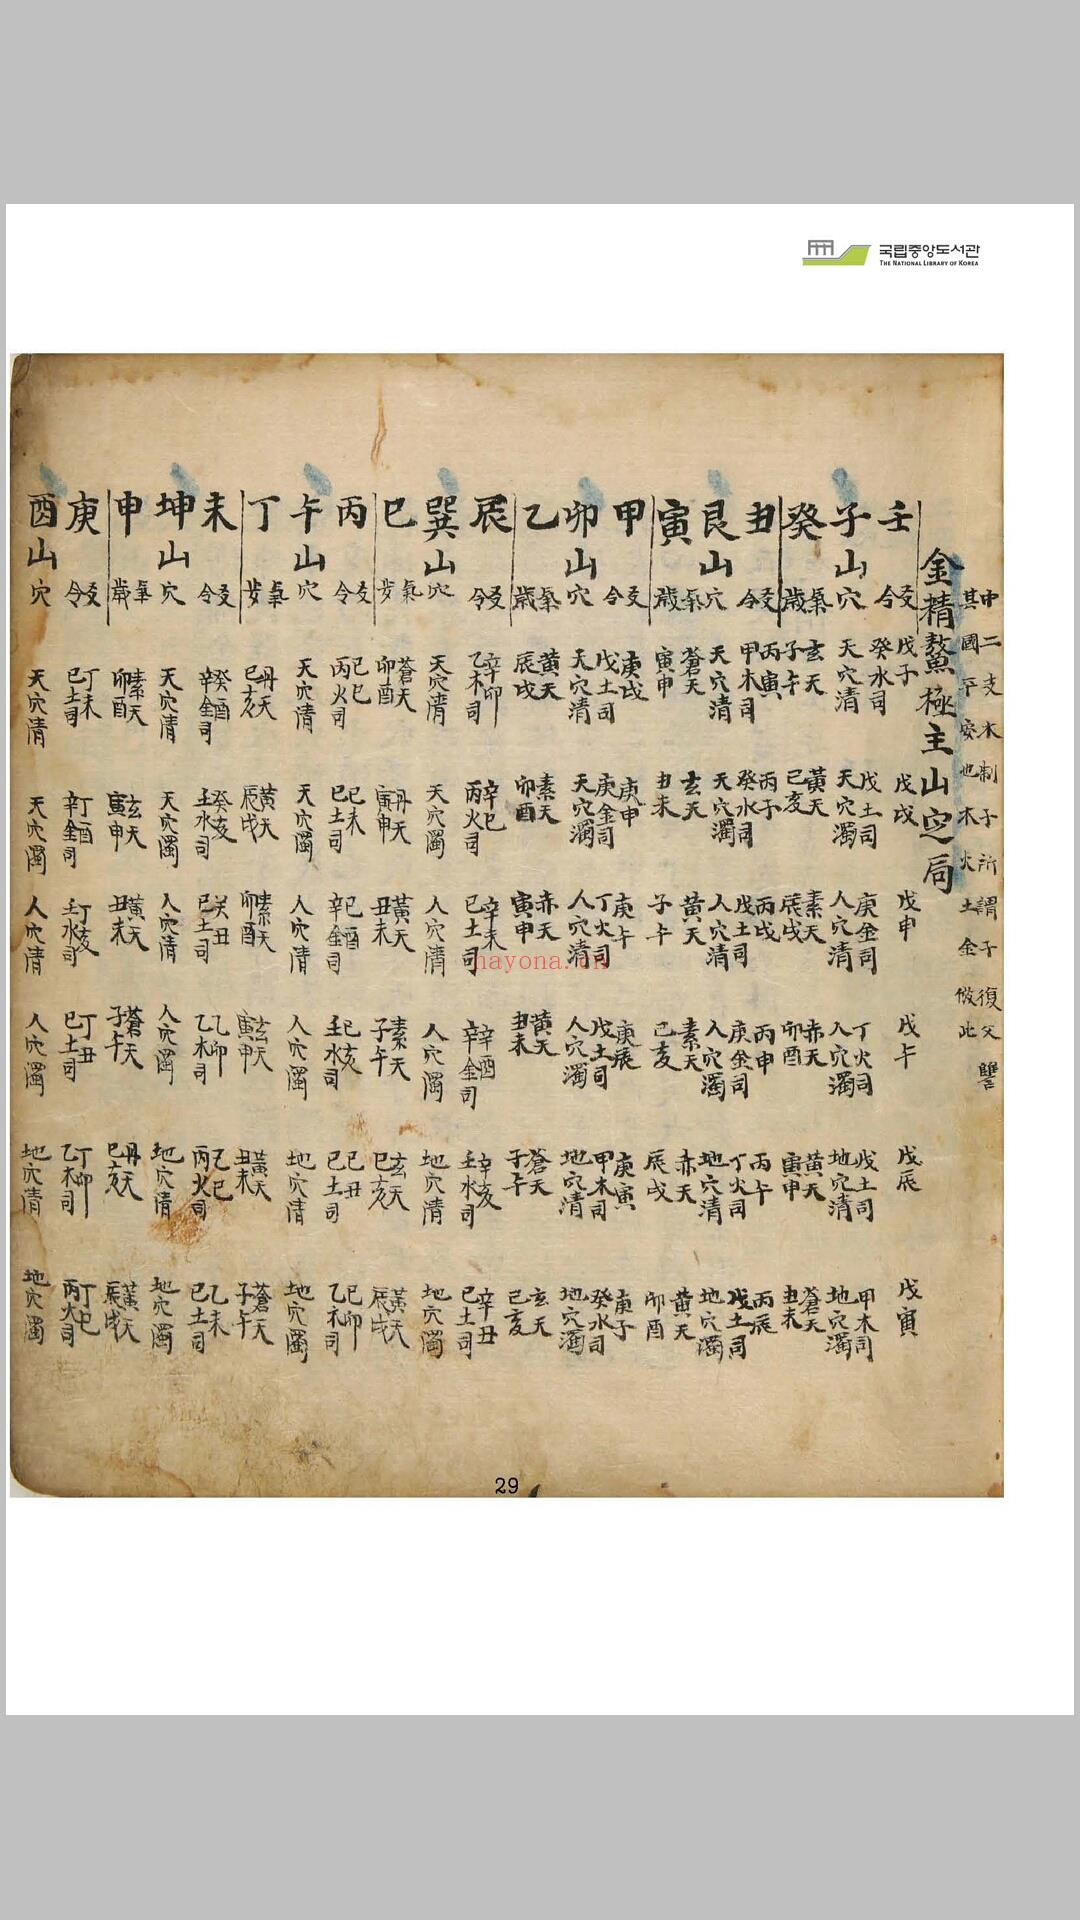 국립중앙도서관
THE NATIONAL LIBRARY OF KOREA
中二支木制子所謂子復父讐
其國平安也木火土金倣此
金精鰲極主山定局
壬子癸 丑艮寅 甲卯乙 辰巽巳 丙午丁 未坤申 庚酉
山 山 山 山 山 山 山
戊子 戊戌 戊申 戊午 戊辰 戊寅
癸水司 戊土司 庚金司 丁火司 戊土司 甲木司
天穴清 天穴濁 人穴清 人穴濁 地穴清 地穴濁
玄天 黃天 素天 赤天 黃天 蒼天
子午 巳亥 辰戌 卯酉 寅申 丑未
丙寅 丙子 丙戌 丙申 丙午 丙辰
甲木司 癸水司 戊土司 庚金司 丁火司 戊土司
天穴清 天穴濁 人穴清 人穴濁 地穴清 地穴濁
蒼天 玄天 黃天 素天 赤天 黃天
寅申 丑未 子午 巳亥 辰戌 卯酉
庚戌 庚申 庚午 庚辰 庚寅 庚子
戊土司 庚金司 丁火司 戊土司 甲木司 癸水司
天穴清 天穴濁 人穴清 人穴濁 地穴清 地穴濁
黃天 素天 赤天 黃天 蒼天 玄天
辰戌 卯酉 寅申 丑未 子午 巳亥
辛卯 辛巳 辛未 辛酉 辛亥 辛丑
乙木司 丙火司 巳土司 辛金司 壬水司 巳土司
天穴清 天穴濁 人穴清 人穴濁 地穴清 地穴濁
蒼天 丹天 黃天 素天 玄天 黃天
卯酉 寅申 丑未 子午 巳亥 辰戌
巳巳 巳未 巳酉 巳亥 巳丑 巳卯
丙火司 巳土司 辛金司 壬水司 巳土司 乙木司
天穴清 天穴濁 人穴清 人穴濁 地穴清 地穴濁
丹天 黃天 素天 玄天 黃天 蒼天
巳亥 辰戌 卯酉 寅申 丑未 子午
癸酉 癸亥 癸丑 乙卯 乙巳 乙未
辛金司 壬水司 巳土司 乙木司 丙火司 巳土司
天穴清 天穴濁 人穴清 人穴濁 地穴清 地穴濁
素天 玄天 黃天 蒼天 丹天 黃天
卯酉 寅申 丑未 子午 巳亥 辰戌
丁未 丁酉 丁亥 丁丑 丁卯 丁巳
巳土司 辛金司 壬水司 巳土司 乙木司 丙火司
天穴清 天穴濁 人穴清 人穴濁 地穴清 地穴濁
hayona.cn
29